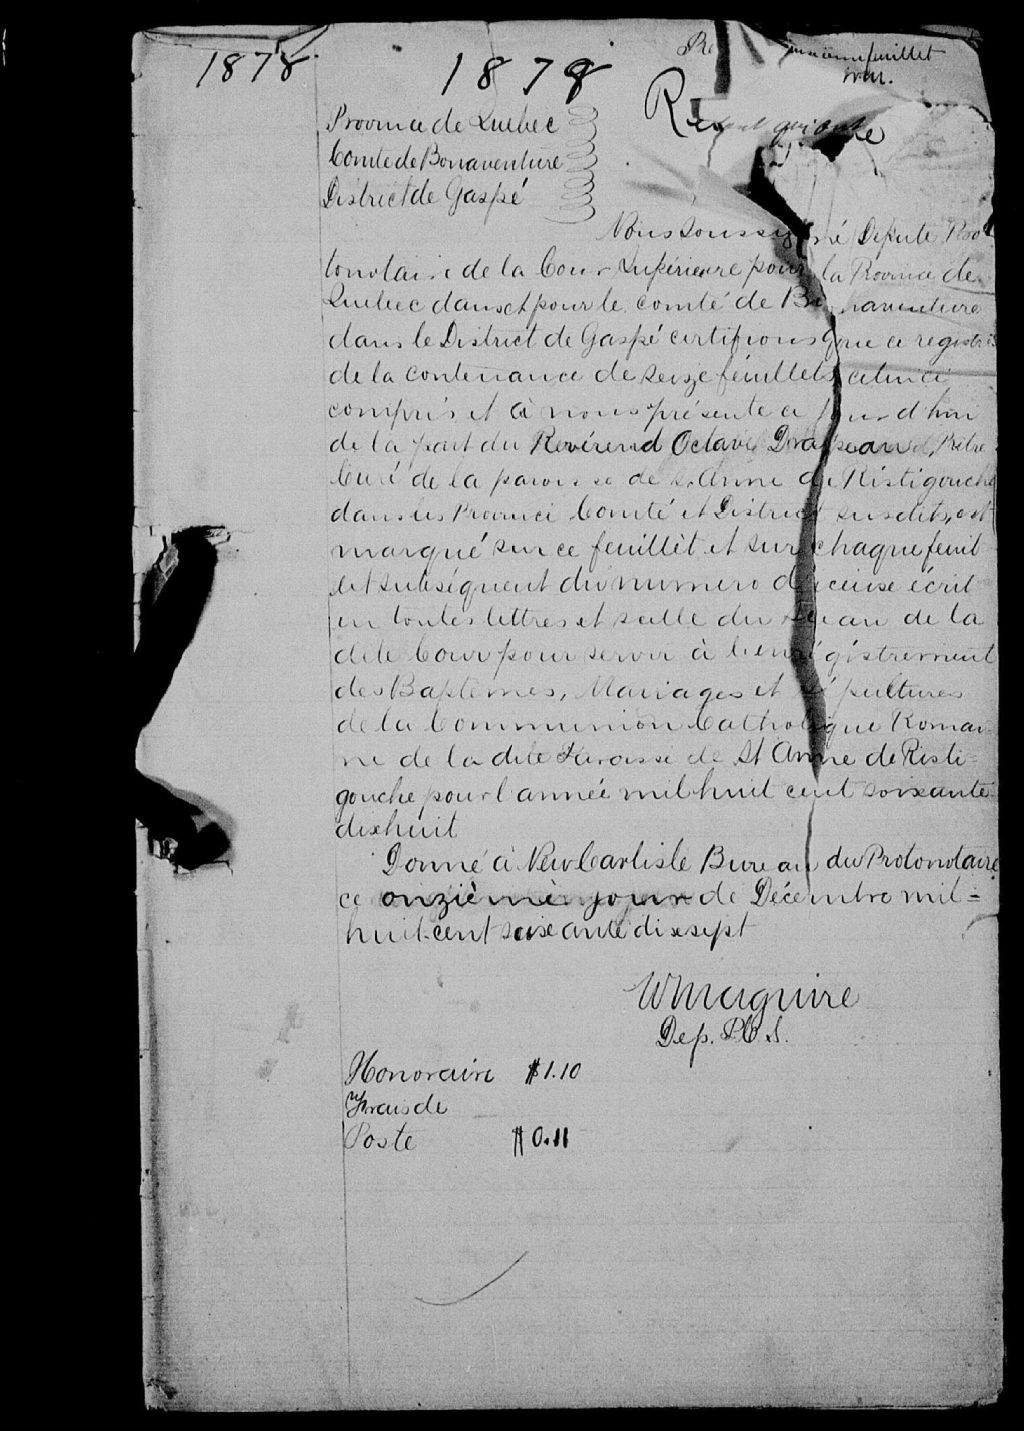 1878 1878
feuillet
Province de Quebec
Comté de Bonaventure
District de Gaspé
Nous soussigné Député Pro
tonotaire de la Cour Supérieure pour la Province de
Quebec dans et pour le comté de Bonaventure
dans le District de Gaspé certifions que ce registre
de la contenance de seize feuillets celui ci
compris et à nous présenté ce jour d'hui
de la part du Révérend Octave Drapeau, Prêtre
Curé de la paroisse de S. Anne de Ristigouche
dans les Province Comté et District susdits, est
marqué sur ce feuillet et sur chaque feuil
let subséquent du numero d'icelui écrit
en toutes lettres et scellé du sceau de la
dite Cour pour servir à l'enrégistrement
des Baptemes, Mariages et Sépultures
de la Communion Catholique Romai
ne de la dite Paroisse de St Anne de Risti=
gouche pour l'année mil huit cent soixante
dixhuit
Donné à New Carlisle Bureau du Protonotaire
ce onzième jour de Décembre mil=
huit cent soixante dix sept
WMaguire
Dep. P.C.S.
Honoraire $1.10
Frais de
Poste $0.11